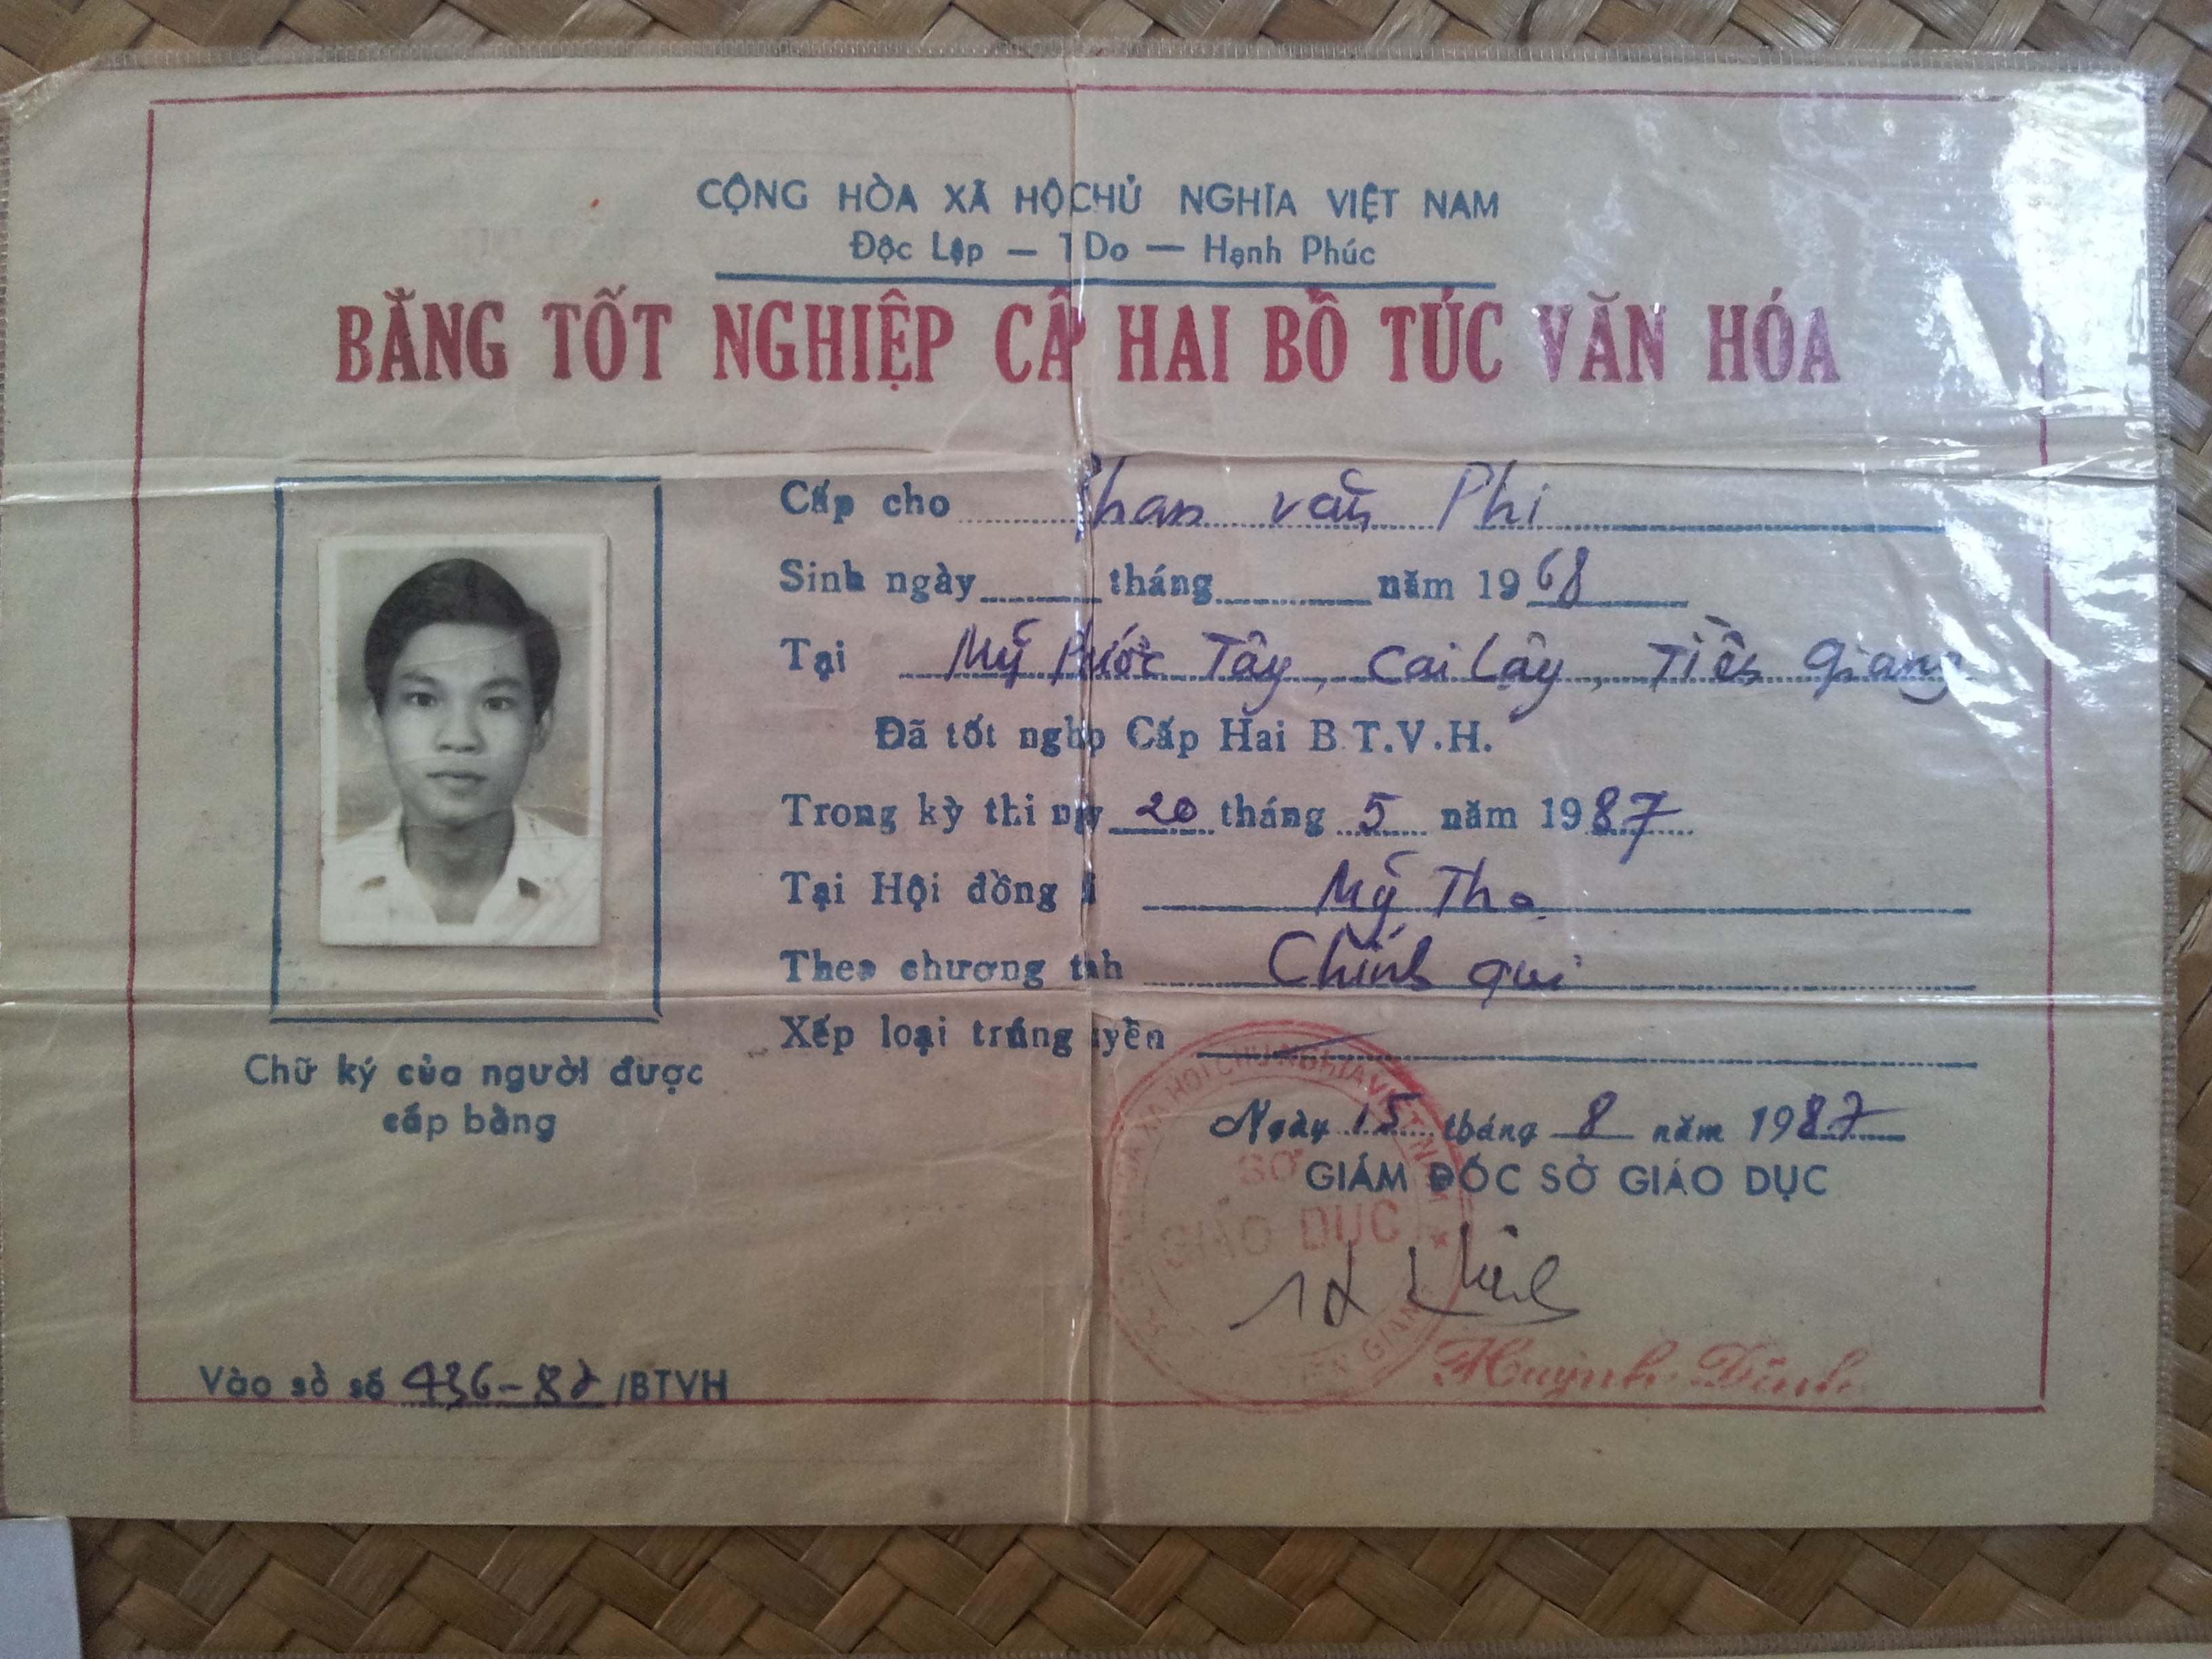 CỘNG HÒA XÃ HỘI CHỦ NGHĨA VIỆT NAM
Độc Lập — Tự Do — Hạnh Phúc
BẰNG TỐT NGHIỆP CẤP HAI BỔ TÚC VĂN HÓA
Cấp cho Phan văn Phi
Sinh ngày tháng năm 1968
Tại Mỹ Phước Tây, Cai Lậy, Tiền giang
Đã tốt nghiệp Cấp Hai B.T.V.H.
Trong kỳ thi ngày 20 tháng 5 năm 1987
Tại Hội đồng thi Mỹ Tho
Theo chương trình Chính qui
Xếp loại trúng tuyển
Chữ ký của người được
cấp bằng
Ngày 15 tháng 8 năm 1987
GIÁM ĐỐC SỞ GIÁO DỤC
SỞ
GIÁO DỤC
Vào sổ số 436-87/BTVH